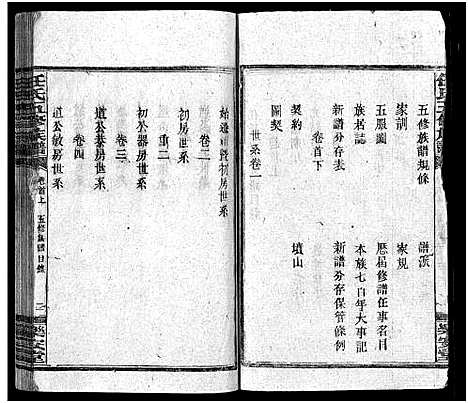 五修族譜規條 譜派
家訓 家規
五服圖 歷屆修譜任事名目
族若誌 本族七百年大事記
新譜分存表 新譜分存保管條例
卷首下
契約 墳山
圖契
世系卷一
始遷 初房世系
卷二
初房世系
初公 重房世系
卷三
道公器房世系
道公泰房世系
卷四
道公敏房世系
任氏五修族譜
卷首上 五修族譜目錄
三
樂安堂
樂安堂